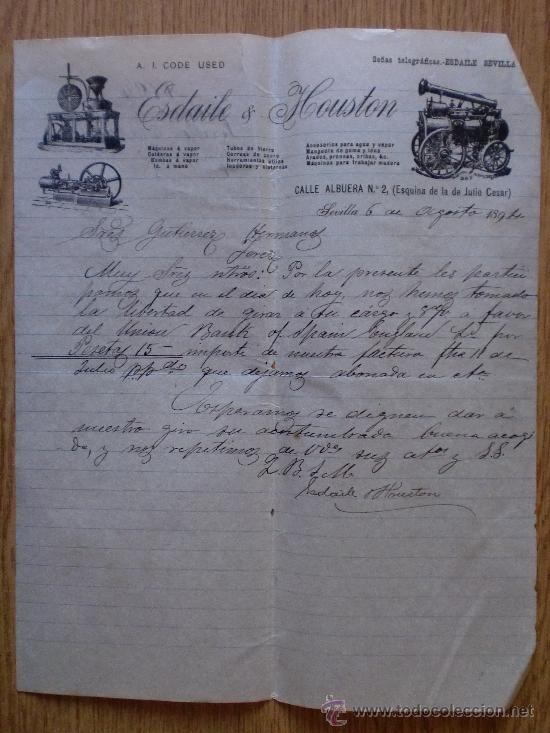 A. I. CODE USED
Señas telegráficas.-ESDAILE SEVILLA
Esdaile & Houston
Máquinas á vapor
Calderas á vapor
Bombas á vapor
Id. á mano
Tubos de hierro
Correas de cuero
Herramientas útiles
Accesorios para agua y vapor
Manguera de goma y lona
Arados, prensas, cribas, &c.
Máquinas para trabajar madera
CALLE ALBUERA N.º 2, (Esquina de la de Julio Cesar)
Sevilla 6 de Agosto 189
Sres Gutierrez Hermanos
Jerez
Muy Sres ntros: Por la presente les partici
pamos que en el dia de hoy, nos hemos tomado
la libertad de girar a su cargo y a favor
del Union Bank of Spain England Ld por
Pesetas 15- importe de nuestra factura fha 11 de
Julio ppdo que dejamos abonada en cta
Esperamos se dignen dar á
nuestro giro su acostumbrada buena acogi
da, y nos repetimos de Vds sus atos y S.S.
Q. B. S. M.
Esdaile & Houston
todocoleccion.net